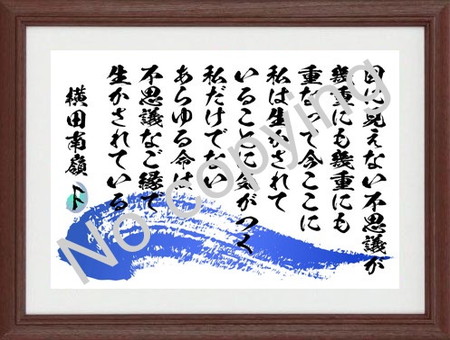 目に見えない不思議が
幾重にも幾重にも
重なって今ここに
私は生かされて
いることに気がつく
私だけでない
あらゆる命は
不思議なご縁で
生かされている
横田南嶺
No copying